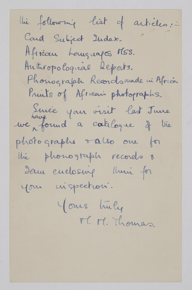 the following list of articles:-
Card Subject Index.
African Languages MSS.
Anthropological Reports.
Phonograph Records made in Africa
Prints of African photographs.
Since your visit last June
we have found a catalogue of the
photographs & also one for
the phonograph records &
I am enclosing them for
your inspection.
Yours truly
M. M. Thomas